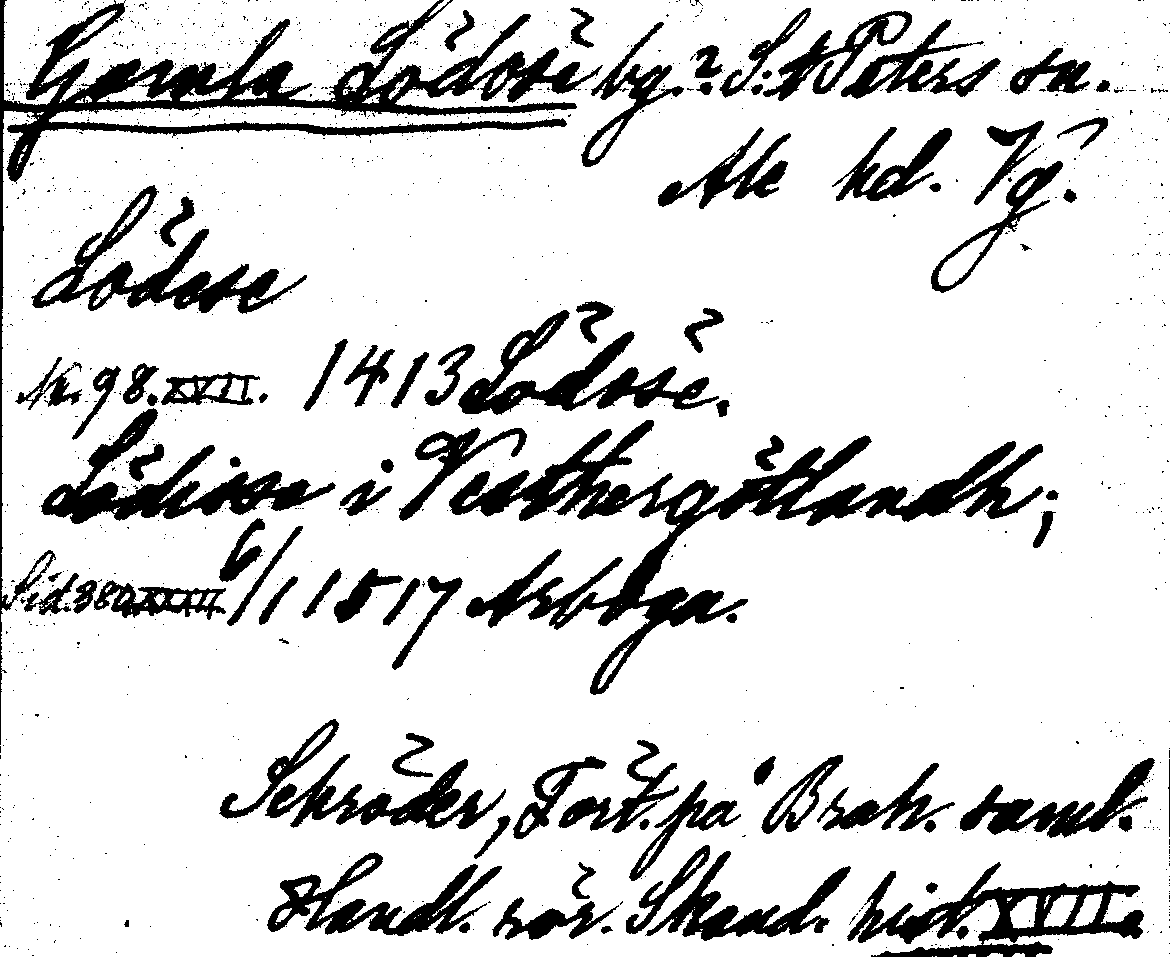 Gamla Lödöse bg.? S:t Peters sn.
Ale hd. Vg.
Lödese
Nr. 98. XVII. 1413 Lödosë.
Lödisse i Vesthergötlandh;
Sid. 380 XVIII 6/1 1517 Arboga.
Schröder, Fört. på Brah. saml.
Handl. rör. Skand. hist. XVII.